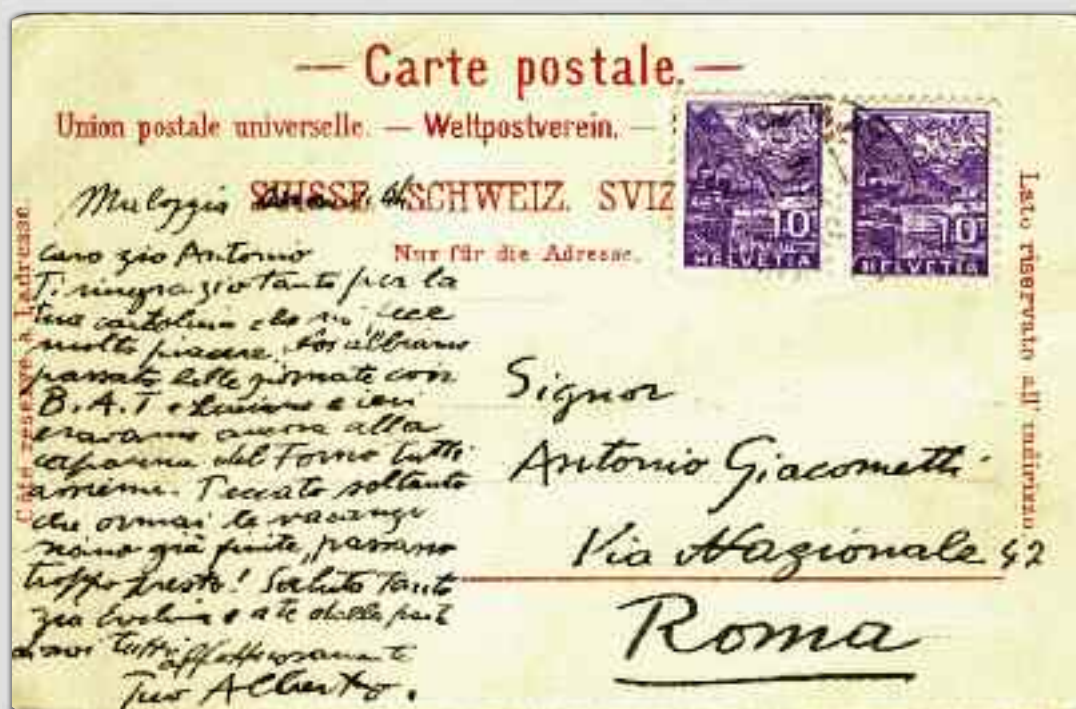 — Carte postale. —
Union postale universelle. — Weltpostverein. —
SUISSE. SCHWEIZ. SVIZ
Nur für die Adresse.
Côté réservé à l'adresse.
Lato riservato all' indirizzo
10
HELVETIA
10
HELVETIA
Maloggia
Caro zio Antonio
Ti ringrazio tanto per la
tua cartolina che mi fece
molto piacere. Noi abbiamo
passato belle giornate con
B.A.T e Luciano e ieri
eravamo ancora alla
capanna del Forno tutti
assieme. Peccato soltanto
che ormai le vacanze
siano già finite, passano
troppo presto! Saluto tanto
zia Evelina e a te dalla parte
di noi tutti affettuosamente
Tuo Alberto.
Signor
Antonio Giacometti
Via Nazionale 42
Roma